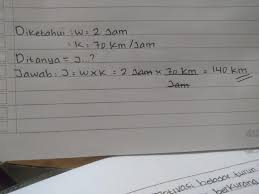 Diketahui : W = 2 Jam
: K = 70 Km/Jam
Ditanya = J...?
Jawab : J = W x K = 2 Jam x 70 Km/Jam = 140 km
belajar turun
berkurang